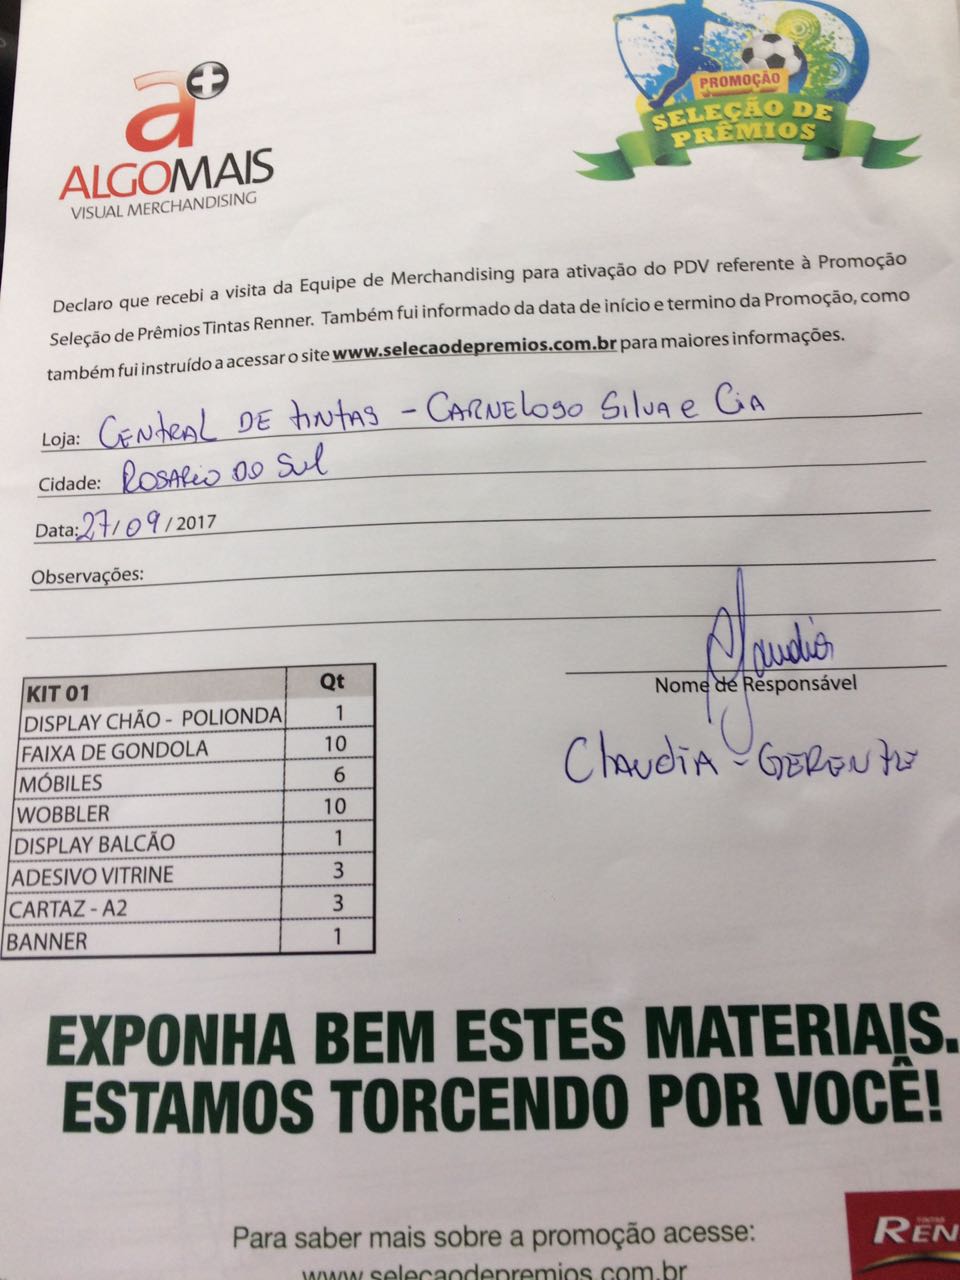 a+
ALGOMAIS
VISUAL MERCHANDISING
PROMOÇÃO
SELEÇÃO DE
PRÊMIOS
Declaro que recebi a visita da Equipe de Merchandising para ativação do PDV referente à Promoção
Seleção de Prêmios Tintas Renner. Também fui informado da data de início e termino da Promoção, como
também fui instruído a acessar o site www.selecaodepremios.com.br para maiores informações.
Loja: CENTRAL DE TINTAS - CARNELOSO SILVA e CIA
Cidade: ROSARIO DO SUL
Data: 27/09/2017
Observações:
Claudia
Nome de Responsável
CLAUDIA - GERENTE
KIT 01 Qt
DISPLAY CHÃO - POLIONDA 1
FAIXA DE GONDOLA 10
MÓBILES 6
WOBBLER 10
DISPLAY BALCÃO 1
ADESIVO VITRINE 3
CARTAZ - A2 3
BANNER 1
EXPONHA BEM ESTES MATERIAIS.
ESTAMOS TORCENDO POR VOCÊ!
Para saber mais sobre a promoção acesse:
www.selecaodepremios.com.br
TINTAS
REN